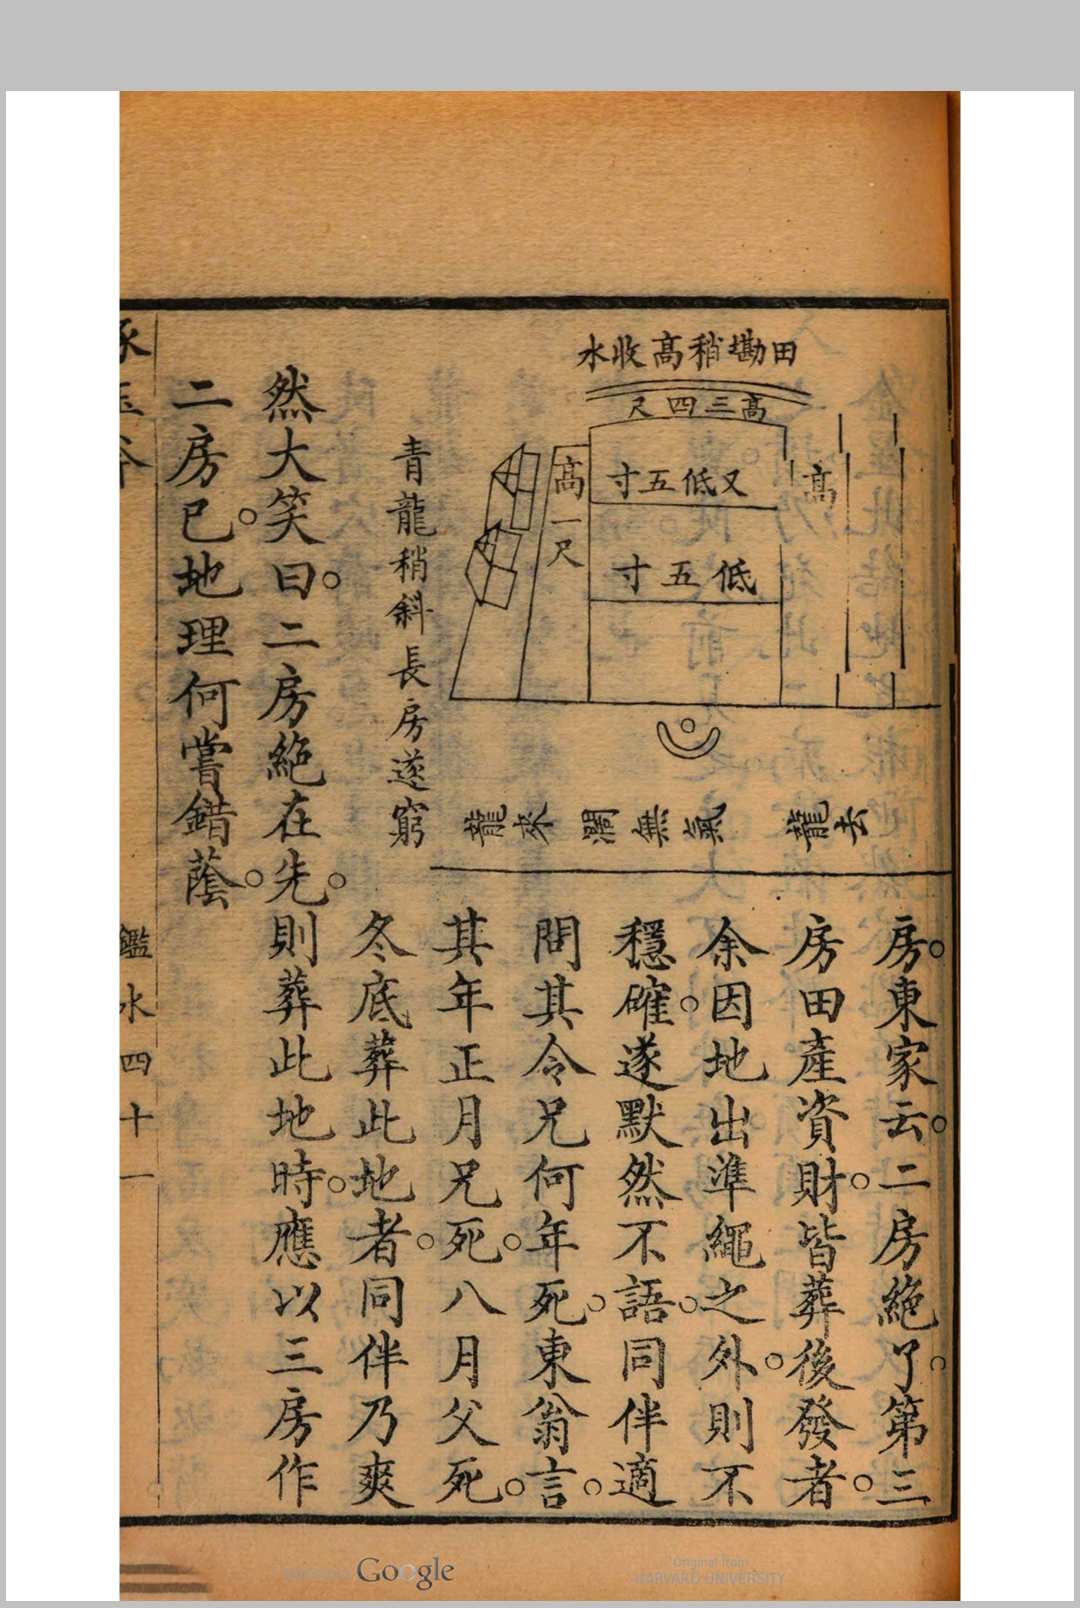 田墈稍高收水
高三四尺
又低五寸
低五寸
高
高一尺
去龍
氣無濶
來龍
青龍稍斜長房遂窮
房東家云二房絶了第三
房田產資財皆葬後發者
余因地出準繩之外則不
穩確遂默然不語同伴適
問其令兄何年死東翁言
其年正月兄死八月父死
冬底葬此地者同伴乃爽
然大笑曰二房絶在先則葬此地時應以三房作
二房已地理何嘗錯蔭
鑑水四十一
Google
Original from
HARVARD UNIVERSITY